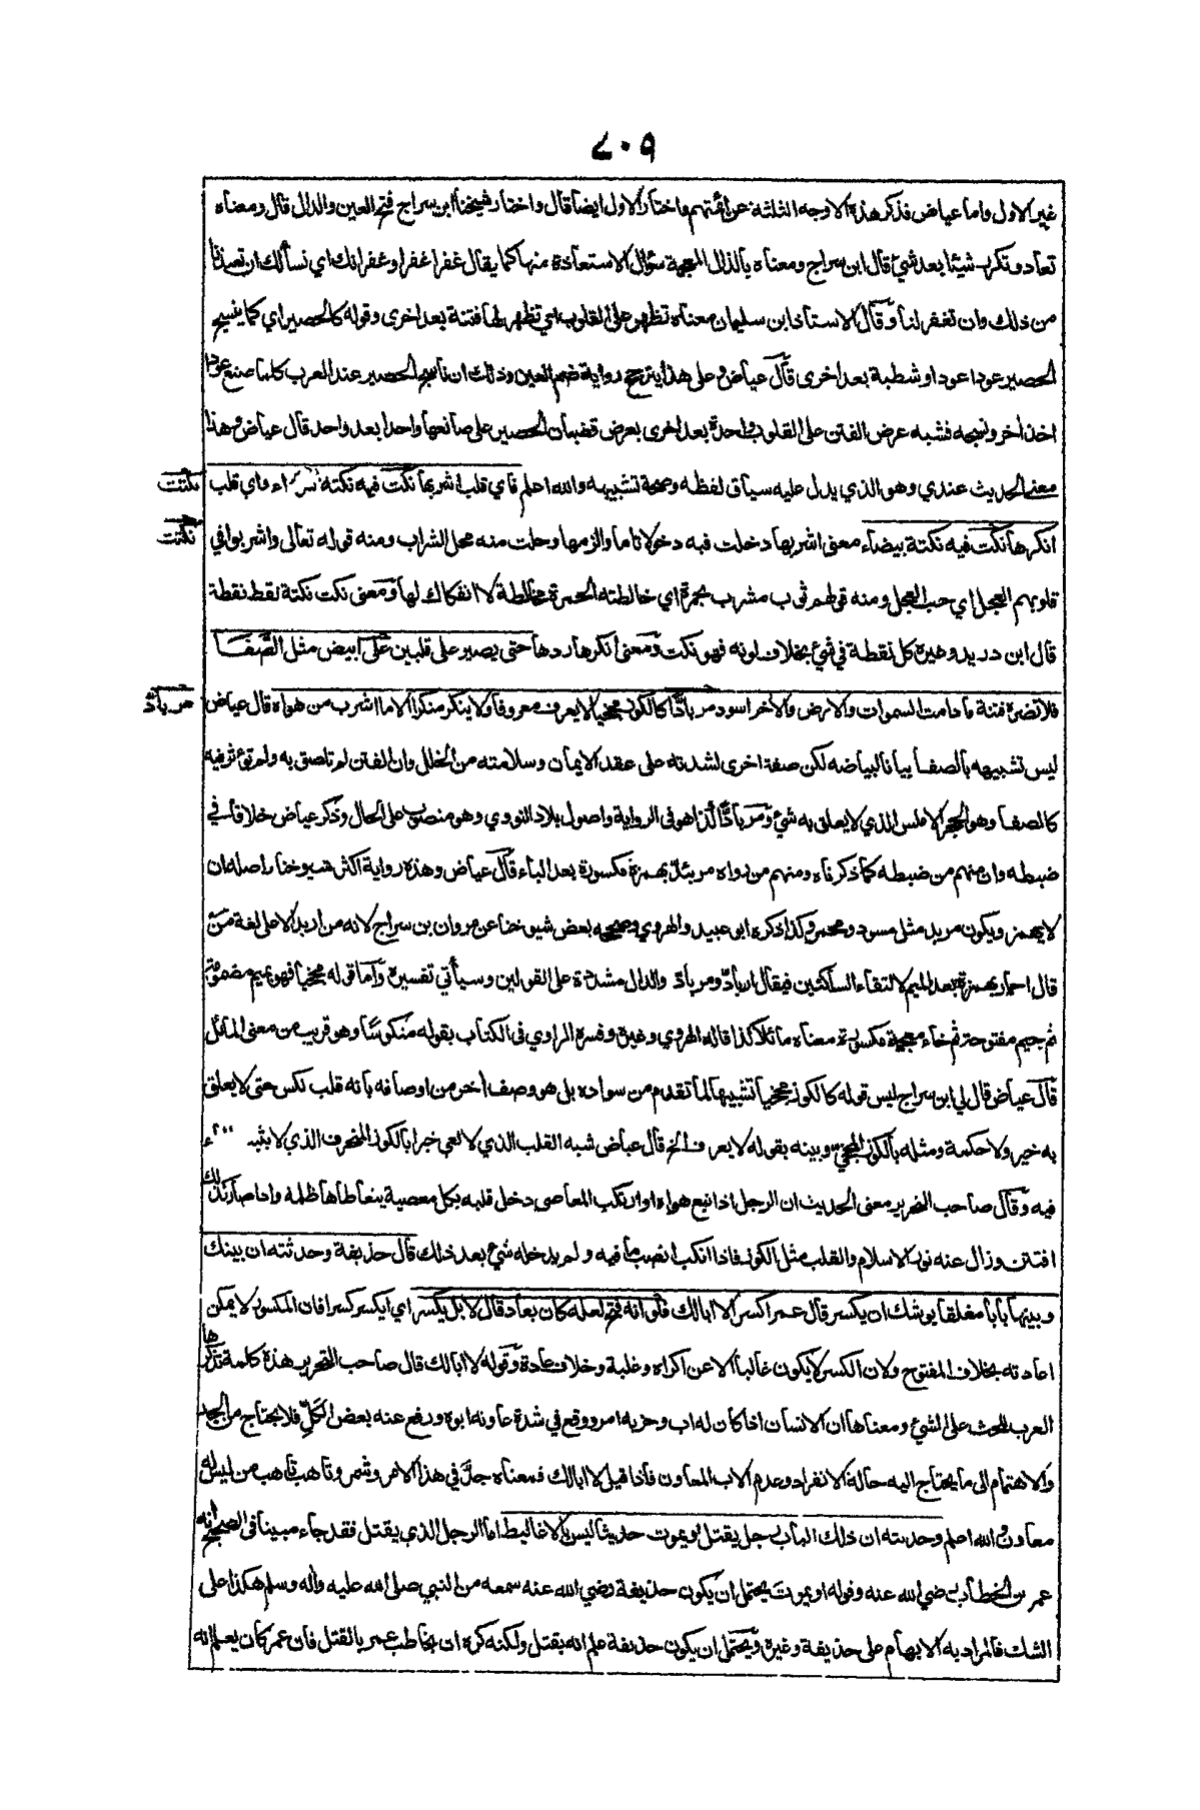 ٤٠٩
غير الاول واما عياض فذكر هذه الاوجه الثلثة عن ائمتهم واختار الاول ايضا قال واختار شيخنا ابن سراج فتح العين والدال قال ومعناه
تعاد وتكرر شيئا بعد شئ قال ابن سراج ومعناه بالذال المعجمة سؤال الاستعاذة منها كما يقال غفرا غفرا وغفرانك اي نسألك ان تعيذنا
من ذلك وان تغفر لنا وقال الاستاذ ابن سليمان معناه تظهر على القلوب اي تظهر لها فتنة بعد اخرى وقوله كالحصير اي كما ينسج
الحصير عودا عودا وشطبة بعد اخرى قال عياض وعلى هذا يترجح رواية ضم العين وذلك ان ناسج الحصير عند العرب كلما صنع عودا
اخذ اخر ونسجه فشبه عرض الفتن على القلوب واحدة بعد اخرى بعرض قضبان الحصير على صانعها واحدا بعد واحد قال عياض وهذا
معنى الحديث عندي وهو الذي يدل عليه سياق لفظه وصحة تشبيهه والله اعلم فاي قلب اشربها نكت فيه نكتة سوداء واي قلب
نكتت
انكرها نكت فيه نكتة بيضاء معنى اشربها دخلت فيه دخولا تاما والزمها وحلت منه محل الشراب ومنه قوله تعالى واشربوا في
نكتت
قلوبهم العجل اي حب العجل ومنه قولهم ثوب مشرب بحمرة اي خالطته الحمرة مخالطة لا انفكاك لها ومعنى نكت نكتة نقط نقطة
قال ابن دريد وغيره كل نقطة في شئ بخلاف لونه فهو نكت ومعنى انكرها ردها حتى يصير على قلبين على ابيض مثل الصفا
فلا تضره فتنة ما دامت السموات والارض والاخر اسود مربادا كالكوز مجخيا لا يعرف معروفا ولا ينكر منكرا الا ما اشرب من هواه قال عياض
مربادّ
ليس تشبيهه بالصفا بيانا لبياضه لكن صفة اخرى لشدته على عقد الايمان وسلامته من الخلل وان الفتن لم تلصق به ولم تؤثر فيه
كالصفا وهو الحجر الاملس الذي لا يعلق به شئ ومربادا كذا هو في الرواية واصول بلاد النووي وهو منصوب على الحال وذكر عياض خلافا في
ضبطه وان منهم من ضبطه كما ذكرناه ومنهم من رواه مربئد بهمزة مكسورة بعد الباء قال عياض وهذه رواية اكثر شيوخنا واصله ان
لا يهمز ويكون مربد مثل مسود ومحمر وكذا ذكره ابو عبيد والهروي وصححه بعض شيوخنا عن مروان بن سراج لانه من اربد الا على لغة من
قال احمار بهمزة بعد الميم لالتقاء الساكنين فيقال اربادّ ومربادّ والدال مشددة على القولين وسيأتي تفسيره واما قوله مجخيا فهو بميم مضمومة
ثم جيم مفتوحة ثم خاء معجمة مكسورة معناه مائلا كذا قاله الهروي وغيره وفسره الراوي في الكتاب بقوله منكوسا وهو قريب من معنى المائل
قال عياض قال لي ابن سراج ليس قوله كالكوز مجخيا تشبيها لما تقدم من سواده بل هو وصف اخر من اوصافه بانه قلب نكس حتى لا يعلق
به خير ولا حكمة ومثله بالكوز المجخي وبينه بقوله لا يعرف الخ قال عياض شبه القلب الذي لا يعي خيرا بالكوز المنحرف الذي لا يثبت
فيه وقال صاحب التحرير معنى الحديث ان الرجل اذا تبع هواه او ارتكب المعاصي دخل قلبه بكل معصية يتعاطاها ظلمة واذا صار كذلك
افتتن وزال عنه نور الاسلام والقلب مثل الكوز فاذا انكب انصب ما فيه ولم يدخله شئ بعد ذلك قال حذيفة وحدثته ان بينك
وبينها بابا مغلقا يوشك ان يكسر قال عمر اكسرا لا ابا لك فلو انه فتح لعله كان يعاد قال لا بل يكسر اي ايكسر كسرا فان المكسور لا يمكن
اعادته بخلاف المفتوح ولان الكسر لا يكون غالبا الا عن اكراه وغلبة وخلاف عادة وقوله لا ابا لك قال صاحب التحرير هذه كلمة تذكرها
العرب للحث على الشئ ومعناها ان الانسان اذا كان له اب وحزبه امر ووقع في شدة عاونه ابوه ورفع عنه بعض الكل فلا يحتاج من الجد
والاهتمام الى ما يحتاج اليه حالة الانفراد وعدم الاب المعاون فاذا قيل لا ابا لك فمعناه جد في هذا الامر وشمر وتاهب تاهب من ليس له
معاون والله اعلم وحدثته ان ذلك الباب رجل يقتل او يموت حديثا ليس بالاغاليط اما الرجل الذي يقتل فقد جاء مبينا في الصحيح انه
عمر بن الخطاب رضي الله عنه وقوله او يموت يحتمل ان يكون حذيفة رضي الله عنه سمعه من النبي صلى الله عليه واله وسلم هكذا على
الشك فالمراد به الابهام على حذيفة وغيره ويحتمل ان يكون حذيفة علم انه يقتل ولكنه كره ان يخاطب عمر بالقتل فان عمر كان يعلم انه